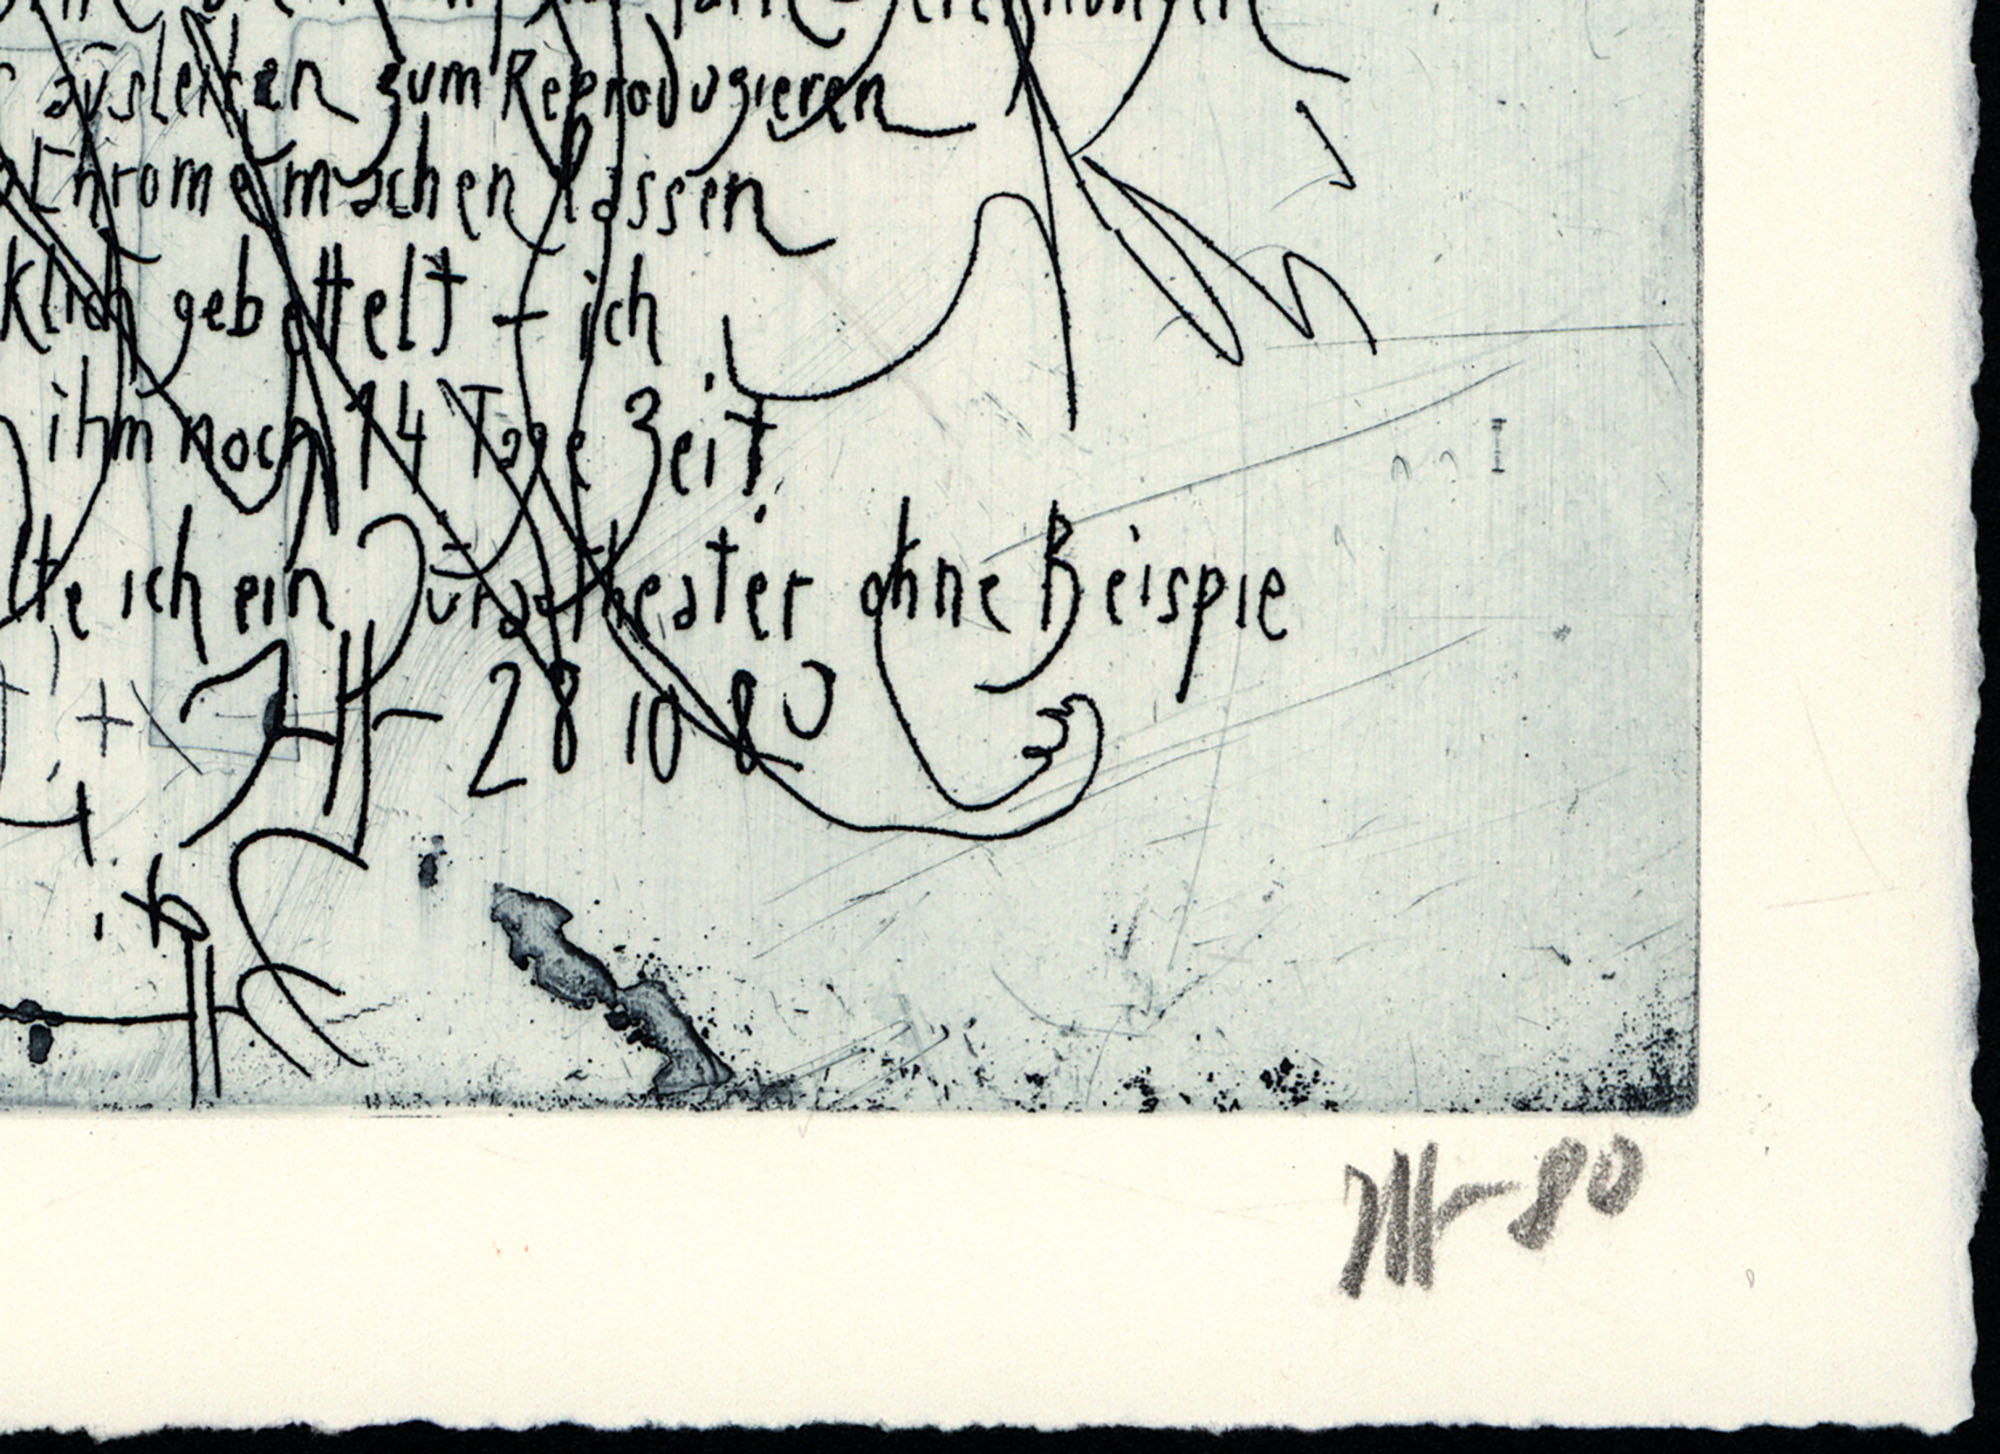 ausleihen zum Reproduzieren
Chrome machen lassen
klich gebettelt – ich
ihm noch 14 Tage Zeit
lte ich ein theater ohne Beispie
JH – 28 10 80
JH – 80